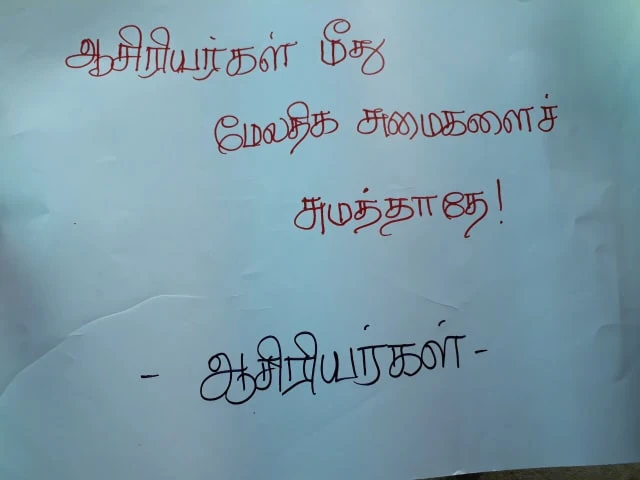 ஆசிரியர்கள் மீது
மேலதிக சுமைகளைச்
சுமத்தாதே!
- ஆசிரியர்கள் -